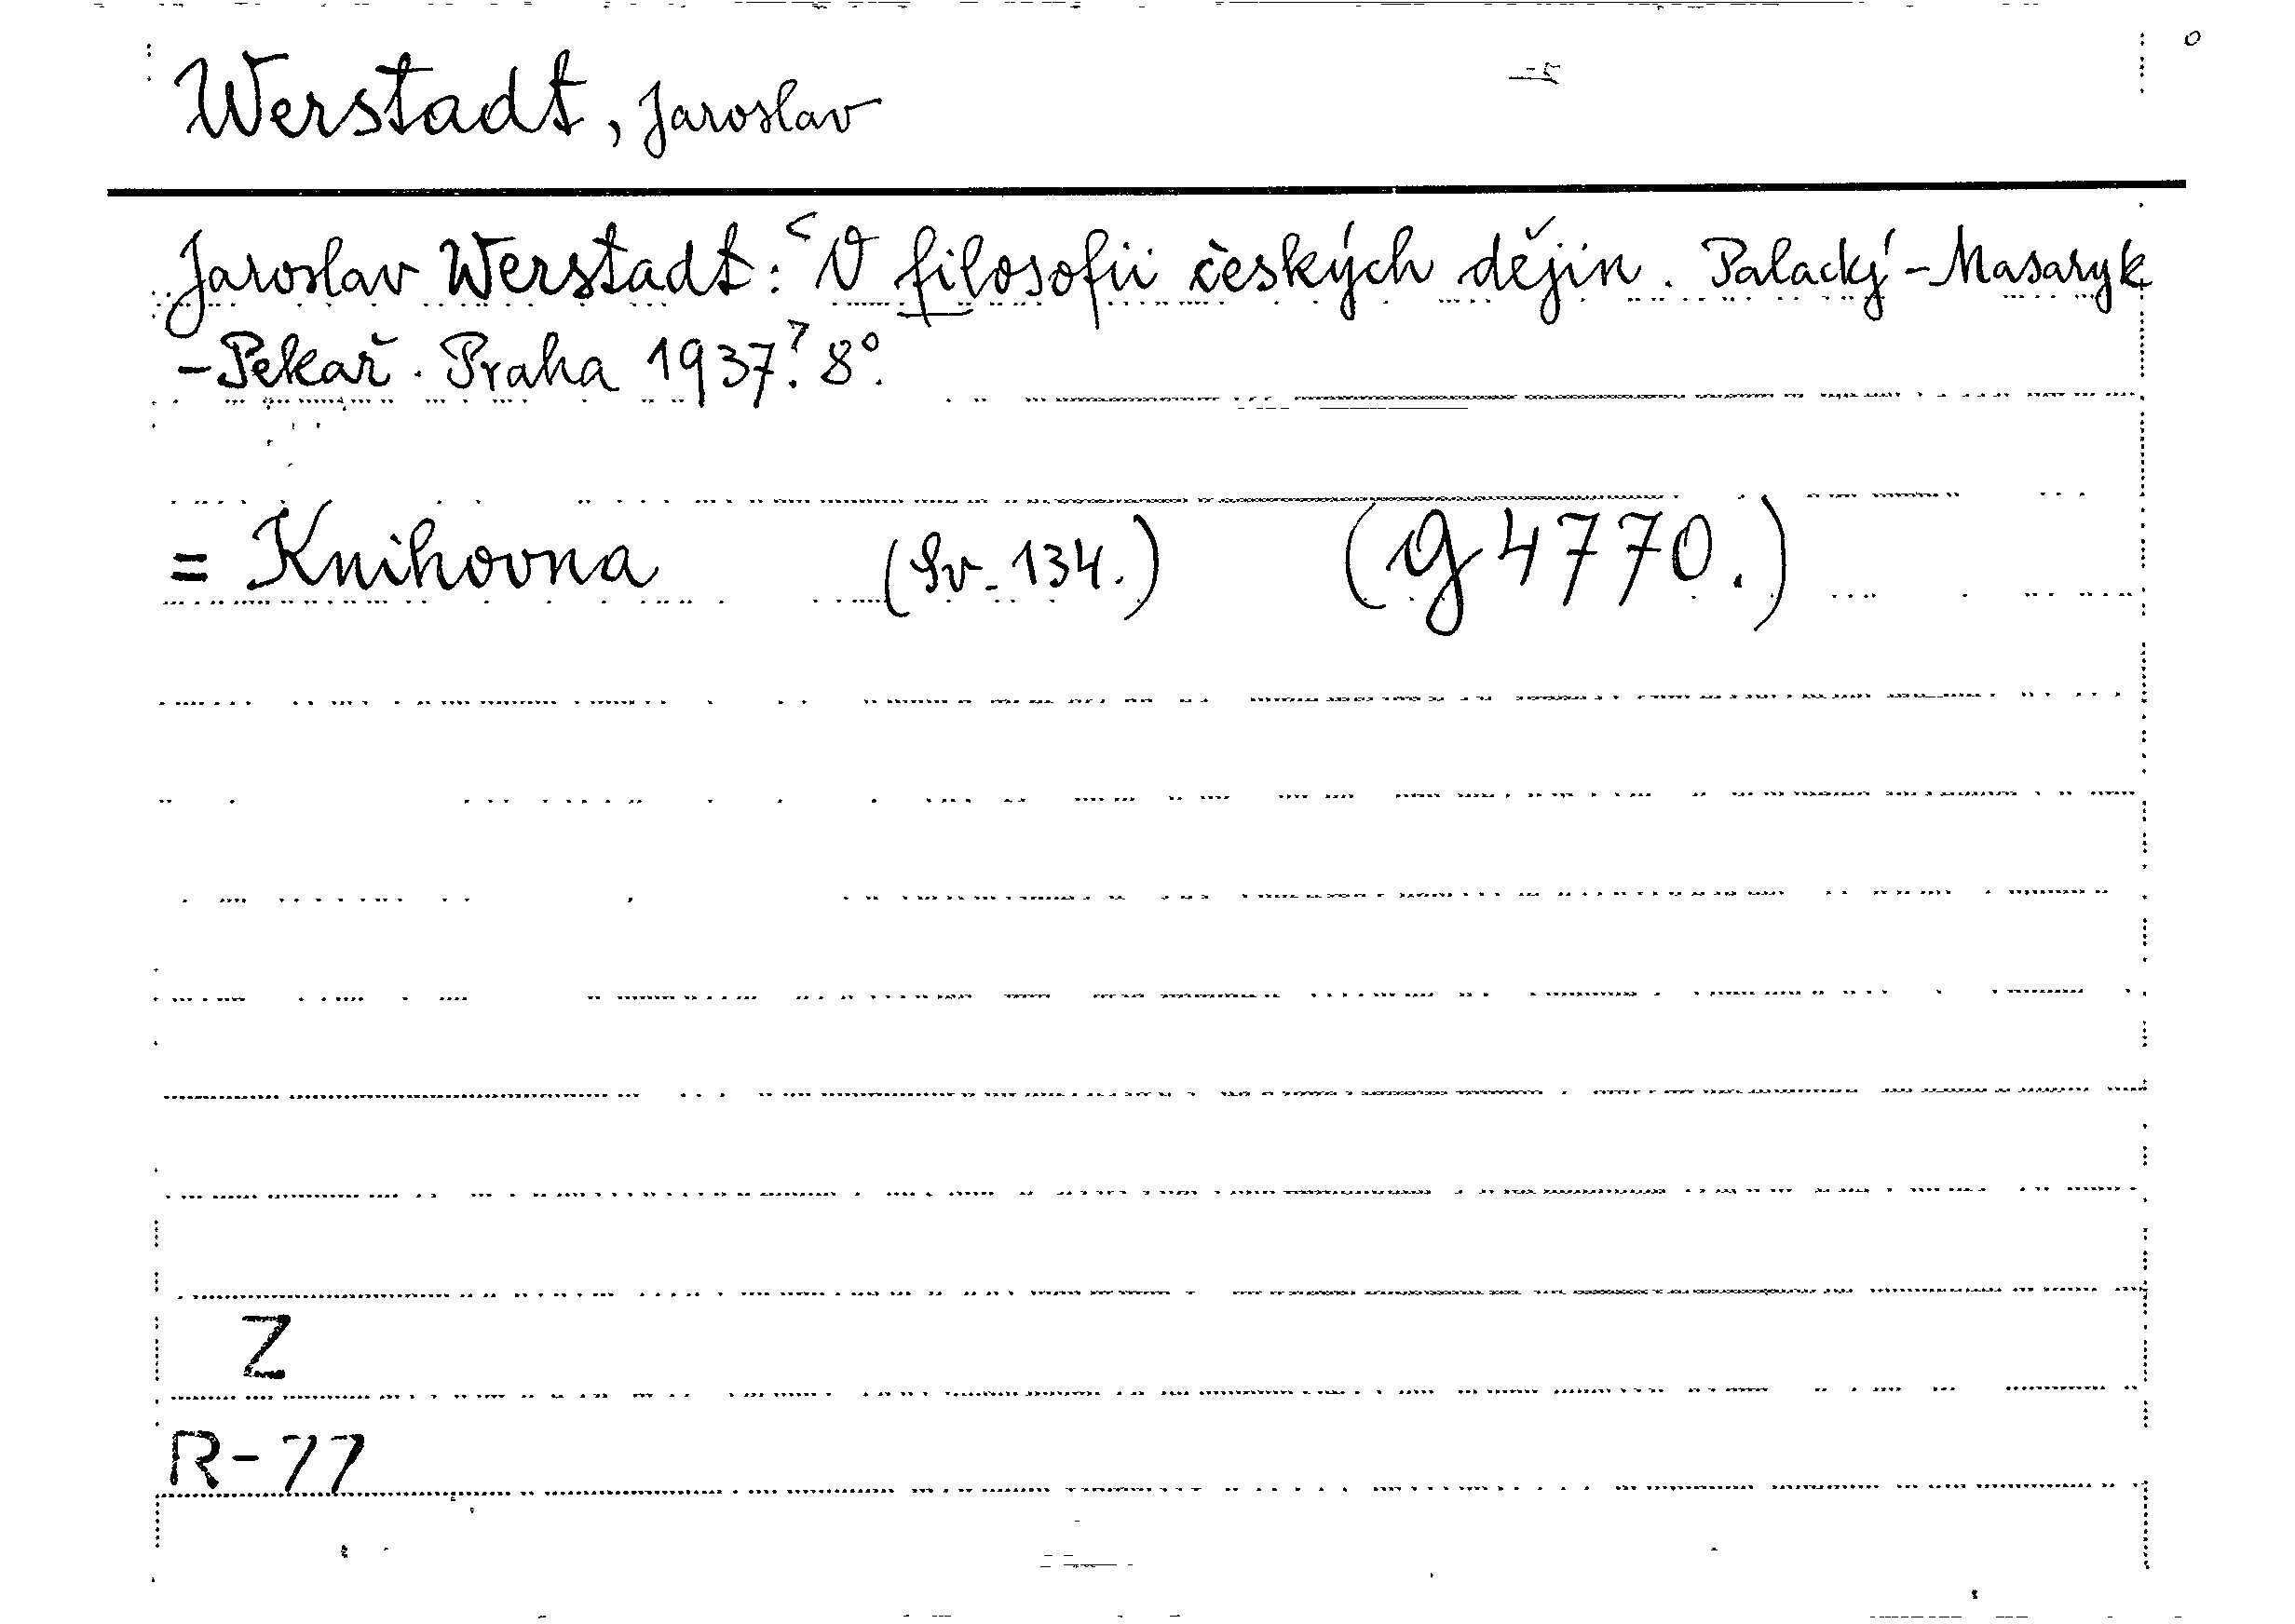 Werstadt, Jaroslav
Jaroslav Werstadt: <O filosofii českých dějin. Palacký-Masaryk
-Pekař. Praha 1937.⁷ 8°.
= Knihovna (Sv. 134.) (g 4770.)
Z
R-77